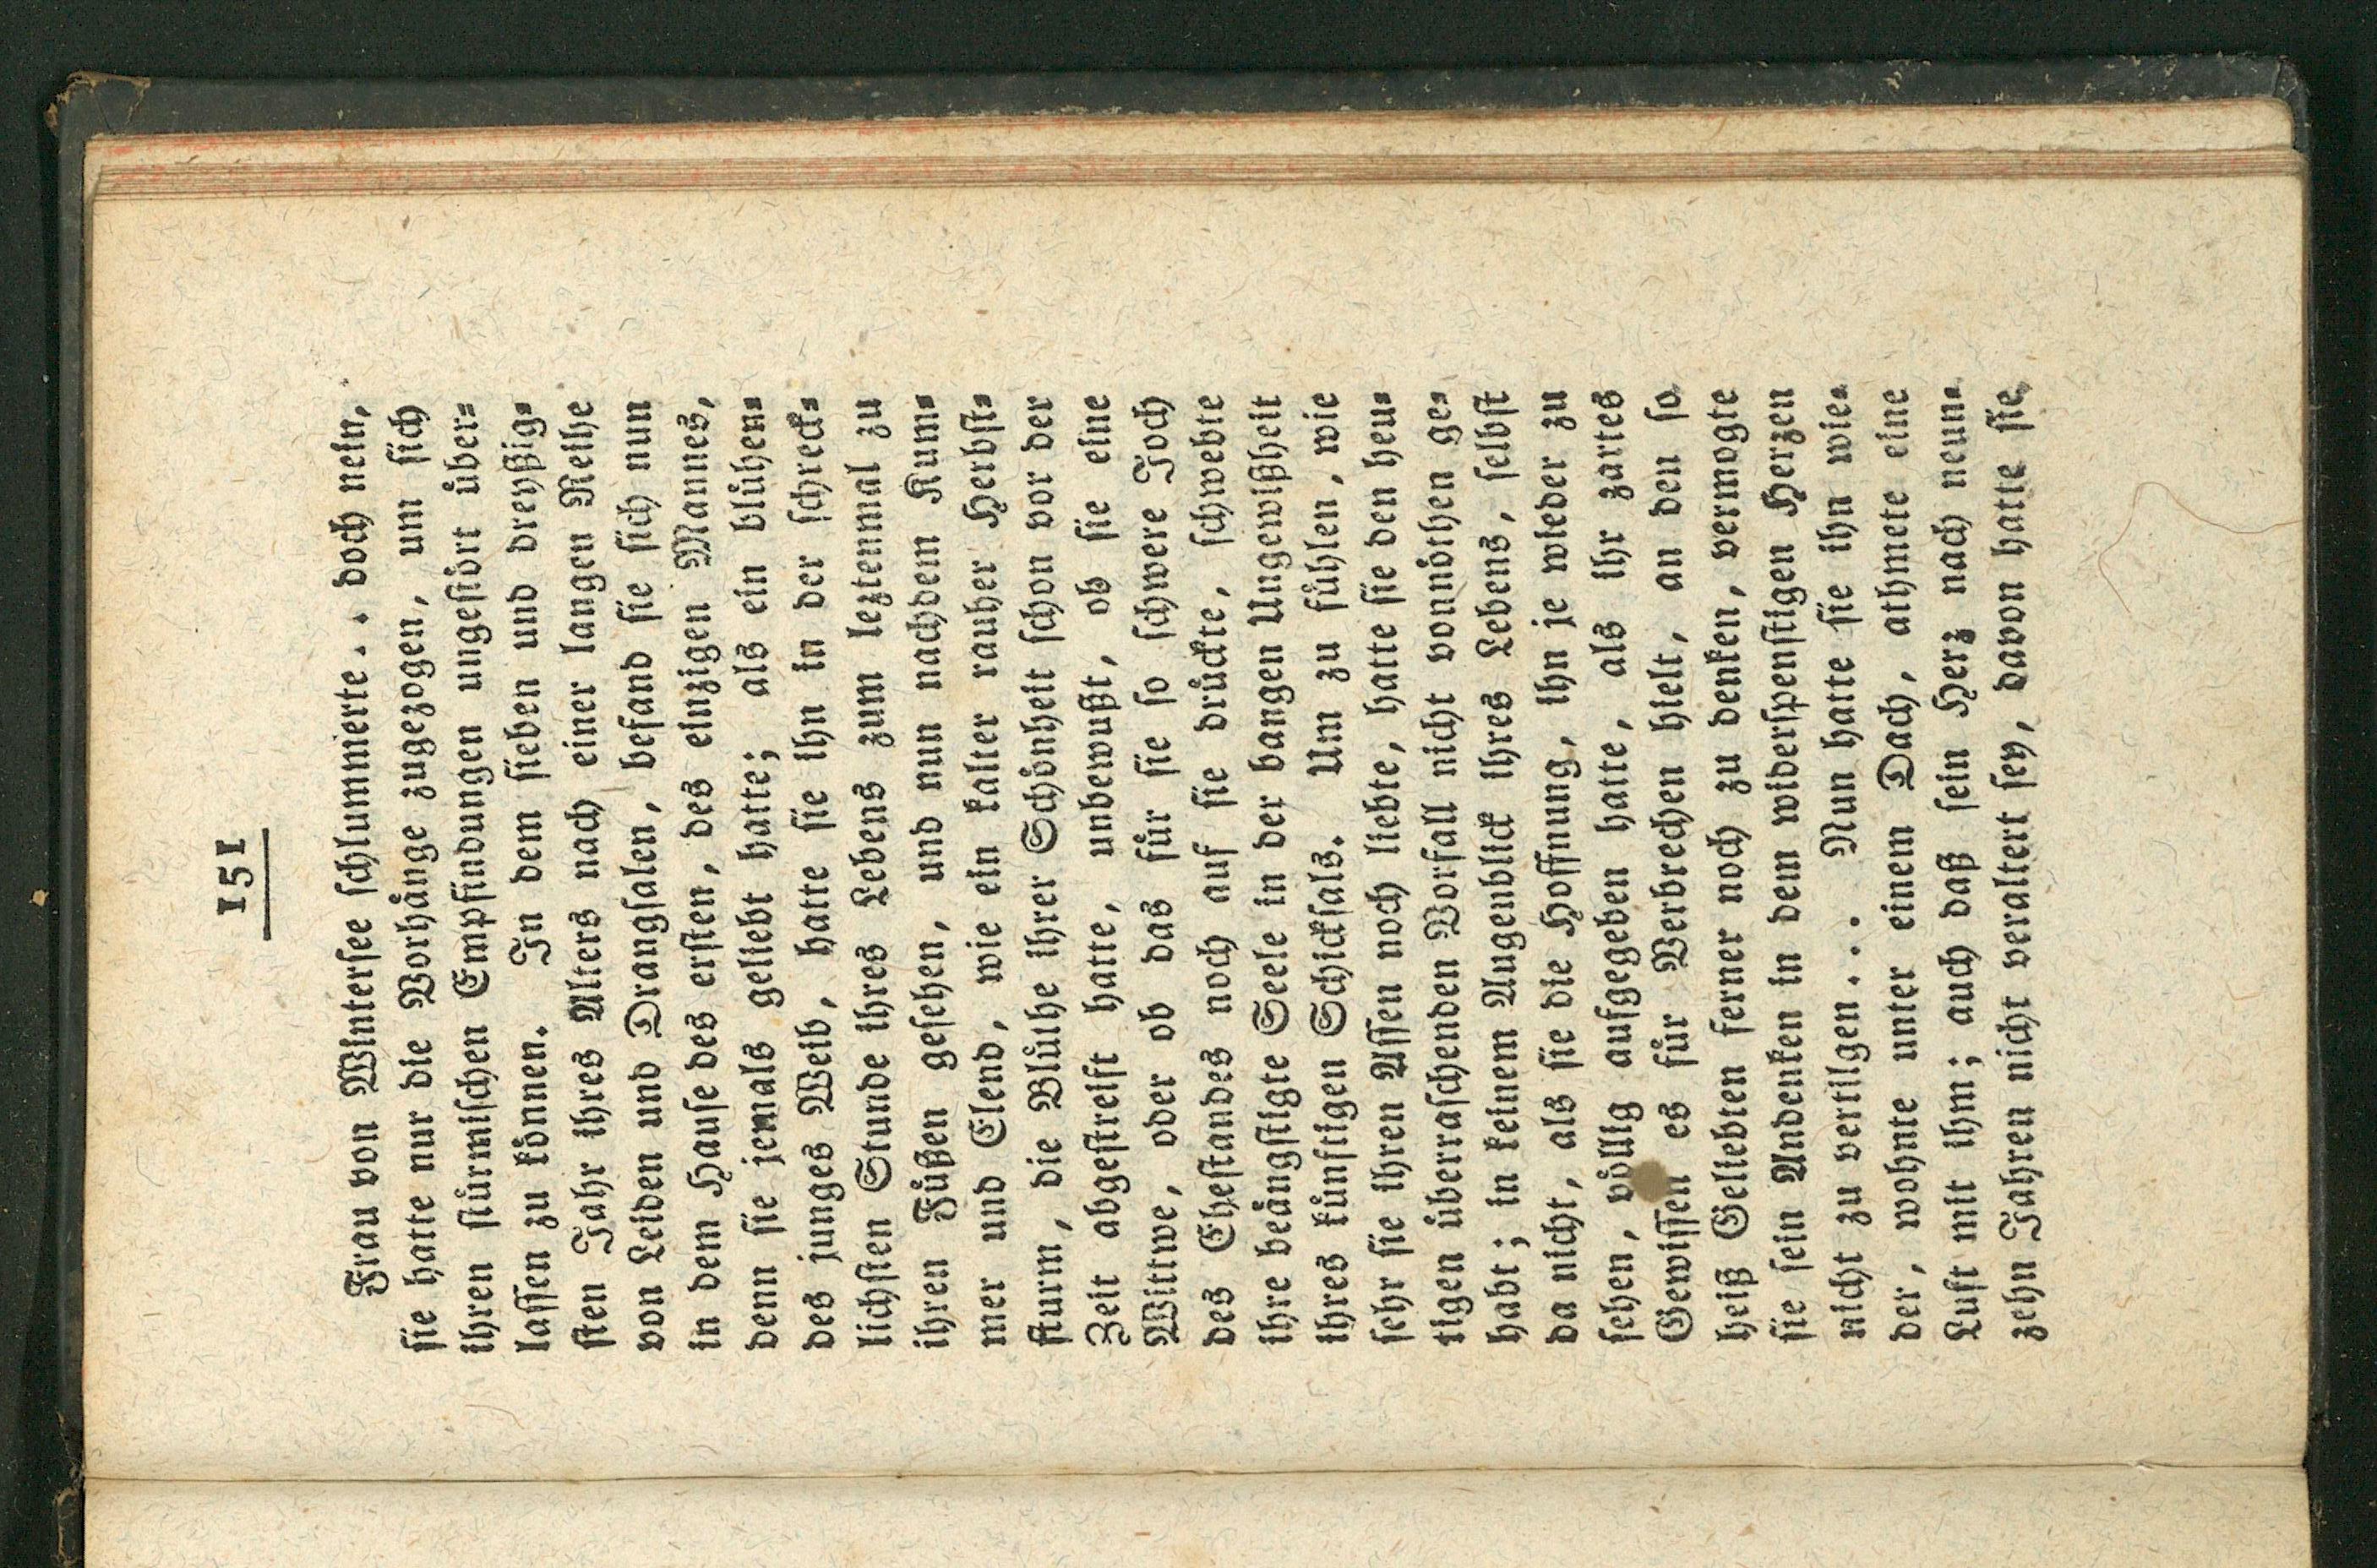 151
Frau von Winterſee ſchlummerte . . doch nein,
ſie hatte nur die Vorhaͤnge zugezogen, um ſich
ihren ſtuͤrmiſchen Empfindungen ungeſtoͤrt uͤber⸗
laſſen zu koͤnnen. In dem ſieben und dreyßig⸗
ſten Jahr ihres Alters nach einer langen Reihe
von Leiden und Drangſalen, befand ſie ſich nun
in dem Hauſe des erſten, des einzigen Mannes,
denn ſie jemals geliebt hatte; als ein bluͤhen⸗
des junges Weib, hatte ſie ihn in der ſchreck⸗
lichſten Stunde ihres Lebens zum leztenmal zu
ihren Fuͤßen geſehen, und nun nachdem Kum⸗
mer und Elend, wie ein kalter rauher Herbſt⸗
ſturm, die Bluͤthe ihrer Schoͤnheit ſchon vor der
Zeit abgeſtreift hatte, unbewußt, ob ſie eine
Wittwe, oder ob das fuͤr ſie ſo ſchwere Joch
des Eheſtandes noch auf ſie druͤckte, ſchwebte
ihre beaͤngſtigte Seele in der bangen Ungewißheit
ihres kuͤnftigen Schickſals. Um zu fuͤhlen, wie
ſehr ſie ihren Aſſen noch liebte, hatte ſie den heu⸗
tigen uͤberraſchenden Vorfall nicht vonnoͤthen ge⸗
habt; in keinem Augenblick ihres Lebens, ſelbſt
da nicht, als ſie die Hoffnung, ihn je wieder zu
ſehen, voͤllig aufgegeben hatte, als ihr zartes
Gewiſſen es fuͤr Verbrechen hielt, an den ſo
heiß Geliebten ferner noch zu denken, vermogte
ſie ſein Andenken in dem widerſpenſtigen Herzen
nicht zu vertilgen . . . Nun hatte ſie ihn wie⸗
der, wohnte unter einem Dach, athmete eine
Luft mit ihm; auch daß ſein Herz nach neun⸗
zehn Jahren nicht veraltert ſey, davon hatte ſie